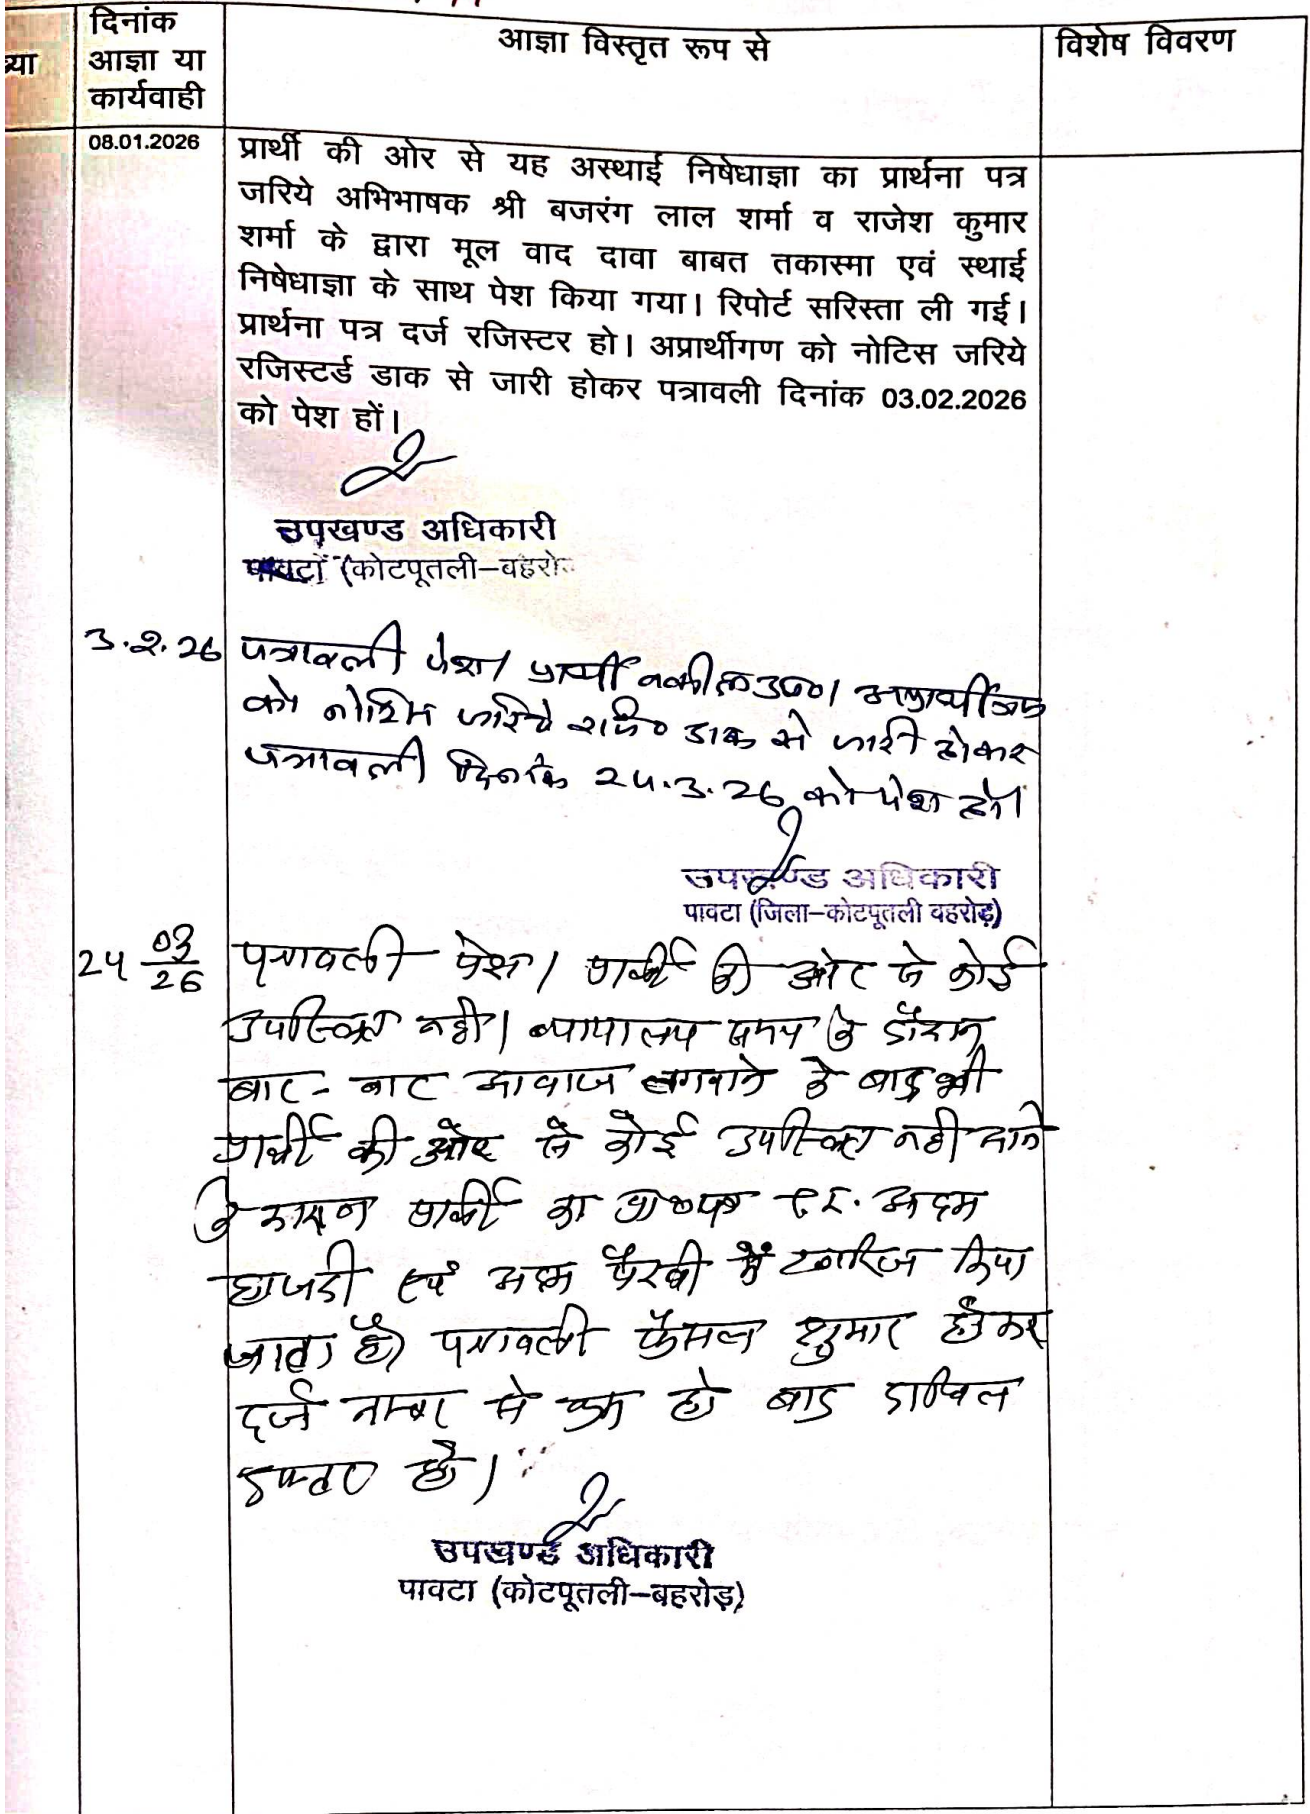 दिनांक
आज्ञा या
कार्यवाही
आज्ञा विस्तृत रूप से
विशेष विवरण
08.01.2026
प्रार्थी की ओर से यह अस्थाई निषेधाज्ञा का प्रार्थना पत्र
जरिये अभिभाषक श्री बजरंग लाल शर्मा व राजेश कुमार
शर्मा के द्वारा मूल वाद दावा बाबत तकास्मा एवं स्थाई
निषेधाज्ञा के साथ पेश किया गया। रिपोर्ट सरिस्ता ली गई।
प्रार्थना पत्र दर्ज रजिस्टर हो। अप्रार्थीगण को नोटिस जरिये
रजिस्टर्ड डाक से जारी होकर पत्रावली दिनांक 03.02.2026
को पेश हों।
उपखण्ड अधिकारी
पावटा (कोटपूतली–बहरोड़
3.2.26 पत्रावली पेश। प्रार्थी वकील उप०। अप्रार्थीगण
को नोटिस जरिये रजि० डाक से जारी होकर
पत्रावली दिनांक 24.3.26 को पेश हो।
उपखण्ड अधिकारी
पावटा (जिला–कोटपूतली बहरोड़)
24 03/26 पत्रावली पेश। प्रार्थी की ओर से कोई
उपस्थित नहीं। न्यायालय समय के दौरान
बार-बार आवाज लगवाने के बाद भी
प्रार्थी की ओर से कोई उपस्थित नहीं आने
के कारण प्रार्थी का अदम
हाजरी एवं अदम पैरवी में खारिज किया
जाता है। पत्रावली फैसल शुमार होकर
दर्ज नम्बर से कम हो बाद दाखिल
दफ्तर हो।
उपखण्ड अधिकारी
पावटा (कोटपूतली–बहरोड़)